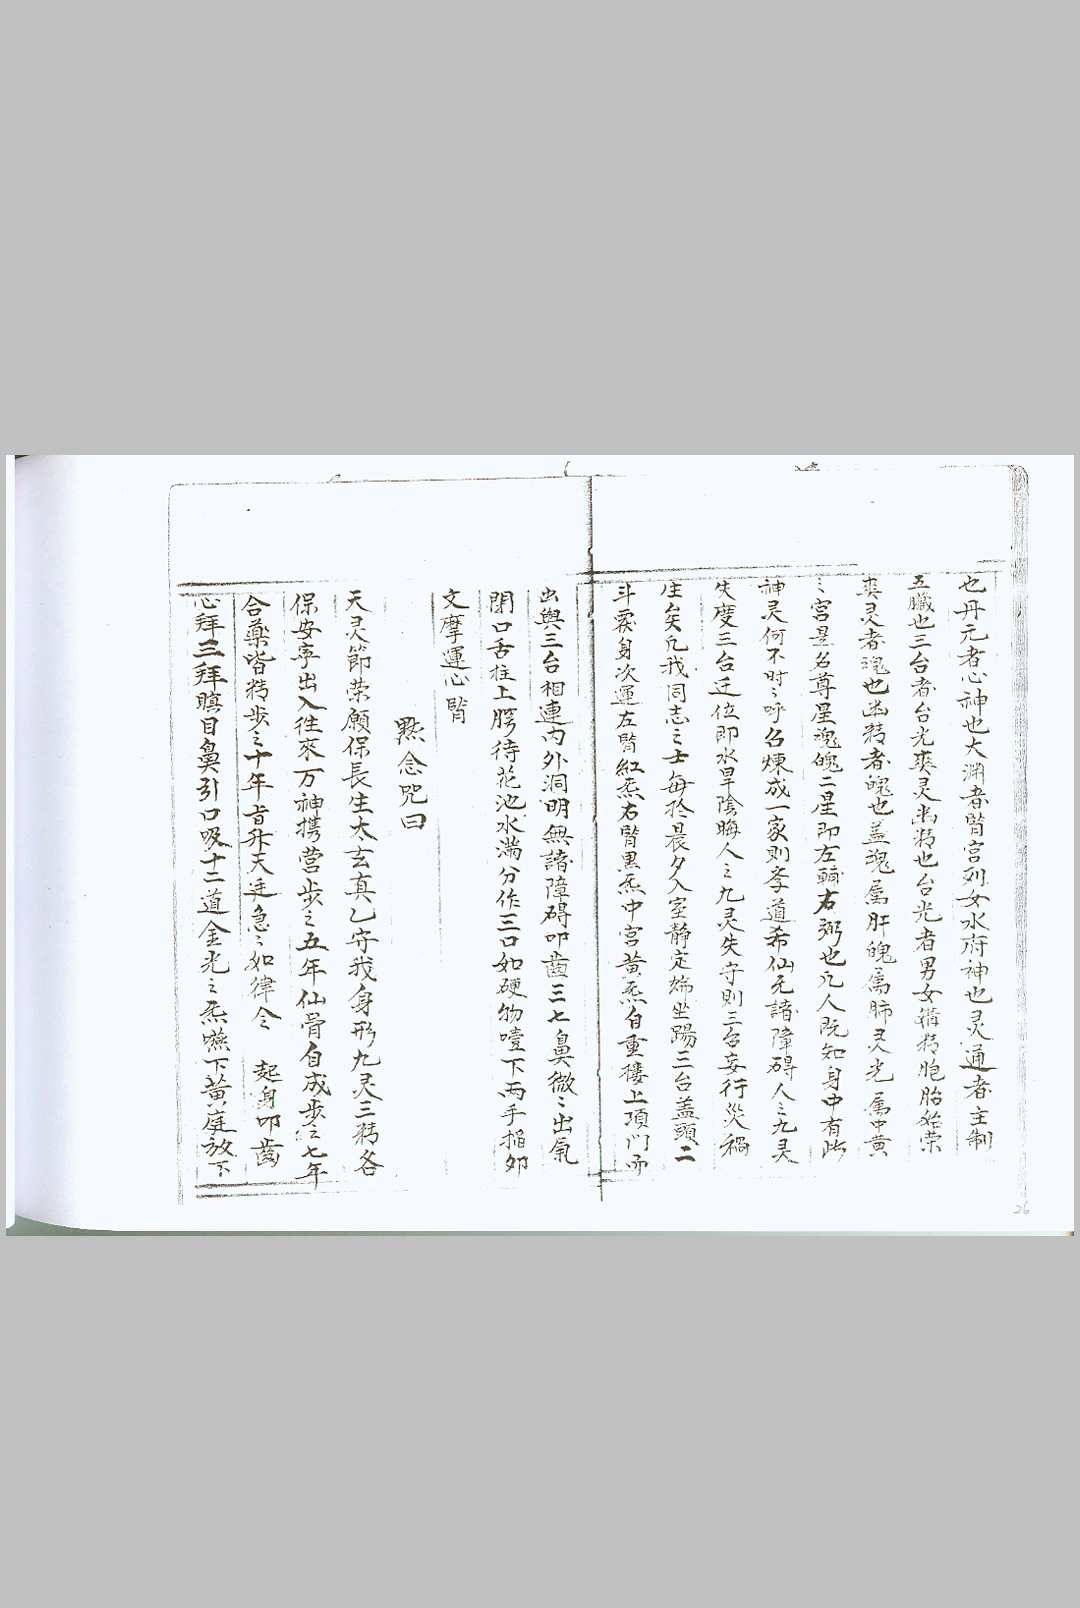 也丹元者心神也大渊者腎宫列女水府神也灵通者主制
五臟也三台者台光爽灵幽精也台光者男女媾精胞胎始荣
爽灵者魂也幽精者魄也盖魂属肝魄属肺灵光属中黄
〻宫是名尊星魂魄二星即左輔右弼也凡人既知身中有此
神灵何不时〻呼名煉成一家则孝道希仙无諸障碍人〻九灵
失度三台迁位即水旱陰晦人之九灵失守则三台妄行災禍
生矣凡我同志之士每於晨夕入室静定端坐踢三台盖頭二
斗覆身次運左腎紅炁右腎黒炁中宫黄炁自重樓上項门而
出與三台相連内外洞明無諸障碍叩齒三七鼻微〻出氣
閉口舌柱上腭待花池水满分作三口如硬物噎下两手搯卯
文摩運心腎
黙念咒曰
天灵節荣願保長生太玄真乙守我身形九灵三精各
保安寧出入往來万神携营步之五年仙骨自成步之七年
合藥皆精步之十年昔升天迋急〻如律令 起身叩齒
心拜三拜瞋目鼻引口吸十二道金光之炁嚥下黄庭放下
26